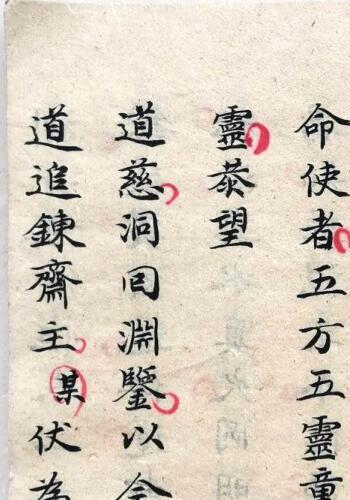 命使者五方五靈童
靈恭望
道慈洞囘淵鑒以今
道追鍊齋主某伏為